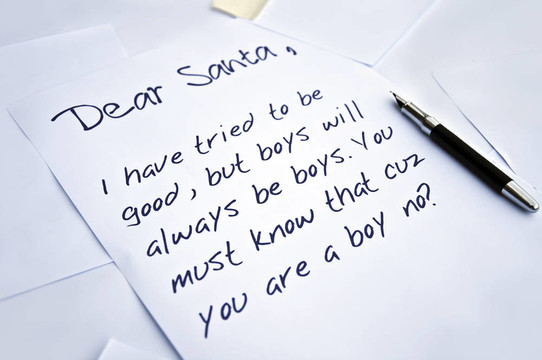 Dear Santa,
I have tried to be
good, but boys will
always be boys. You
must know that cuz
you are a boy no?